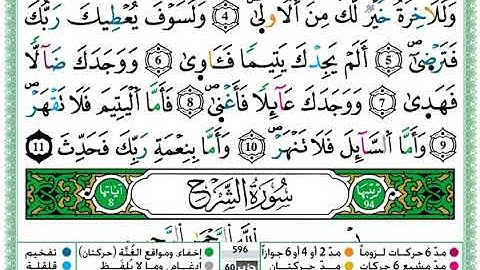 وَلَلْآخِرَةُ خَيْرٌ لَّكَ مِنَ الْأُولَىٰ ﴿4﴾ وَلَسَوْفَ يُعْطِيكَ رَبُّكَ
فَتَرْضَىٰ ﴿5﴾ أَلَمْ يَجِدْكَ يَتِيمًا فَـَٔاوَىٰ ﴿6﴾ وَوَجَدَكَ ضَآلًّا
فَهَدَىٰ ﴿7﴾ وَوَجَدَكَ عَآئِلًا فَأَغْنَىٰ ﴿8﴾ فَأَمَّا الْيَتِيمَ فَلَا تَقْهَرْ
﴿9﴾ وَأَمَّا السَّآئِلَ فَلَا تَنْهَرْ ﴿10﴾ وَأَمَّا بِنِعْمَةِ رَبِّكَ فَحَدِّثْ ﴿11﴾
ترتيبها 94 سُورَةُ الشَّرْحِ آياتها 8
596
مدّ 6 حركات لزوماً مدّ 2 أو 4 أو 6 جوازاً إخفاء ومواقع الغُنَّة (حركتان) تفخيم
مدّ مشبع 6 حركات مدّ حركتان 60 إدغام، وما لا يُلفَظ قلقلة